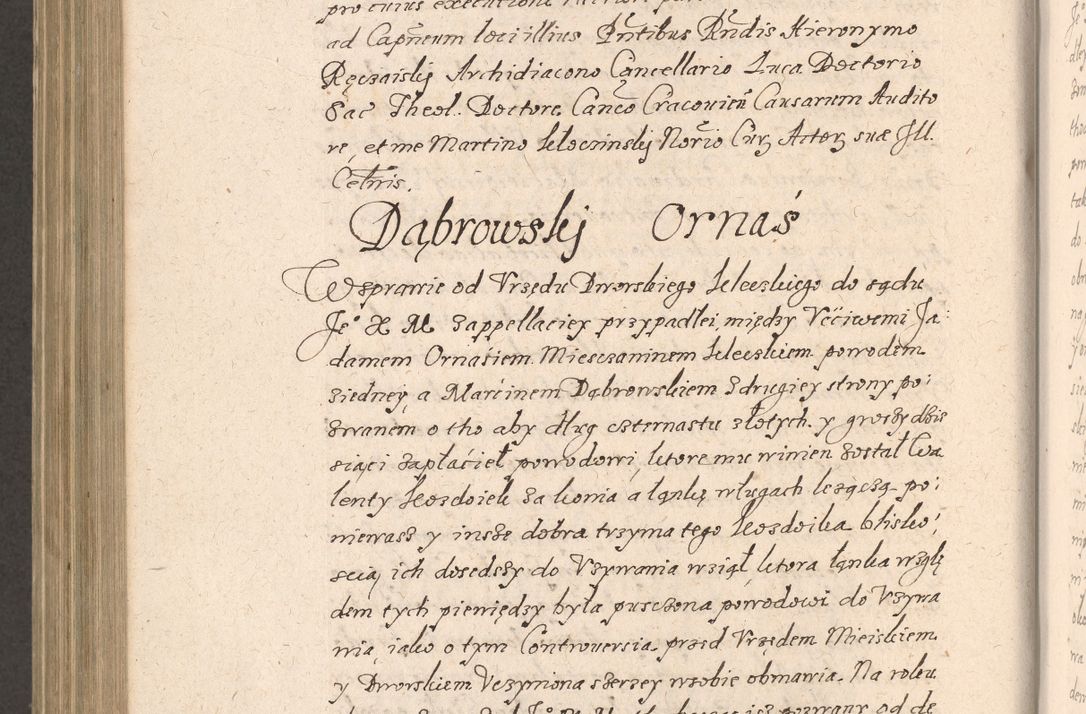 ad Capñeum loci illius Pñtibus Rñdis Hieronymo
Ręczaiskij Archidiacono Cancellario Luca Doctorio
Sac Theol. Doctore Canco Cracovień Causarum Audito
re, et me Martino Kłoczinskij Norio Cur Actor suæ Ill.
Celnis.
Dąbrowskij Ornaś
W sprawie od Vrzędu Dworskiego Kleczkiego do sądu
Je° X M zappellaciey przypadłei, między Vćciwemi Ja
damem Ornasiem Miesczaninem Kleczkiem powodem
ziedney, a Marćinem Dąbrowskiem zdrugiey strony po:
zwanem o tho aby dług czternastu złotych y groszy dzie
siąći zapłaćieł powodowi, ktore mu winien został Wa
lenty Kozdoiek za konia a łąnkę wługach leżączą po:
niewasz y insze dobra trzyma tego Kozdoika blisko:
scią ich doszedszy do Vzywania wziął, ktora łąnka wzglę
dem tych pieniędzy była pusczona powodowi do Vzywa
nia, iako o tym Controuersia przed Vrzędem Mieiskiem
y Dworskiem Vczyniona szerzey wsobie obmawia. Na roku